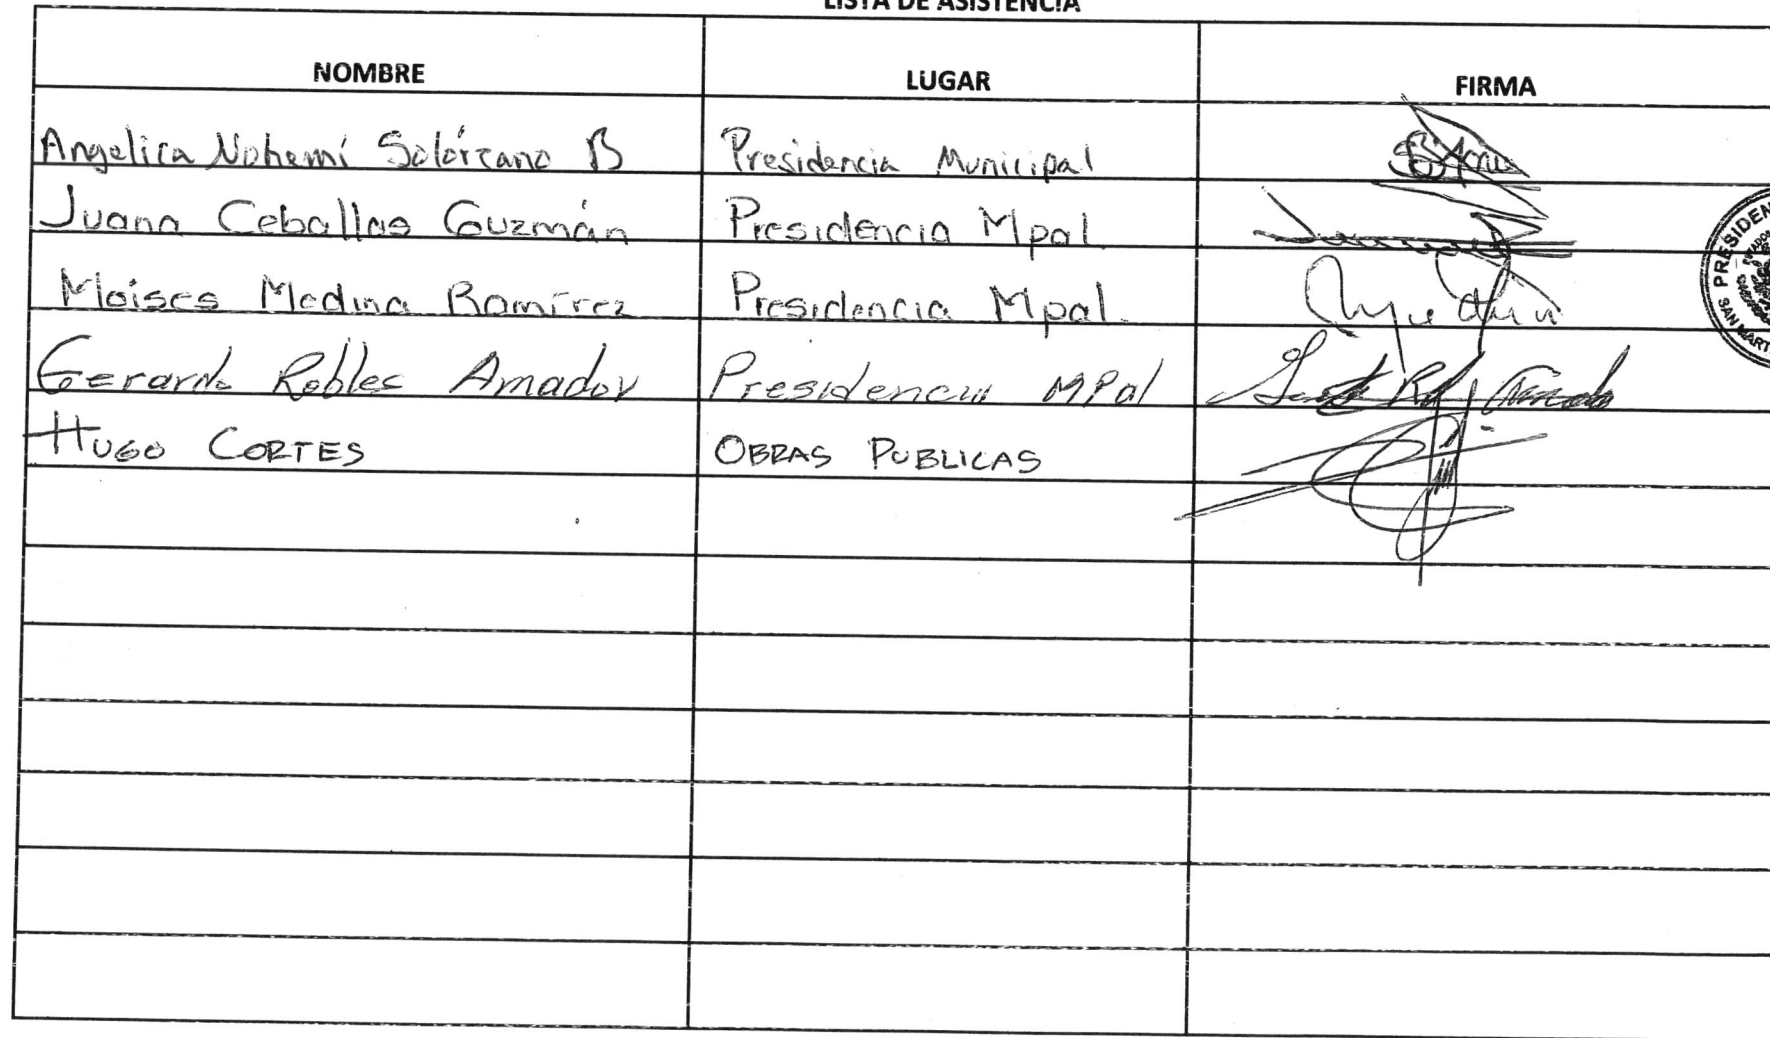 LISTA DE ASISTENCIA
NOMBRE LUGAR FIRMA
Angelica Nohemí Solórzano B Presidencia Municipal
Juana Ceballos Guzmán Presidencia Mpal
Moises Medina Ramírez Presidencia Mpal.
Gerardo Robles Amador Presidencia MPal
HUGO CORTES OBRAS PUBLICAS
PRESIDEN
SAN MART